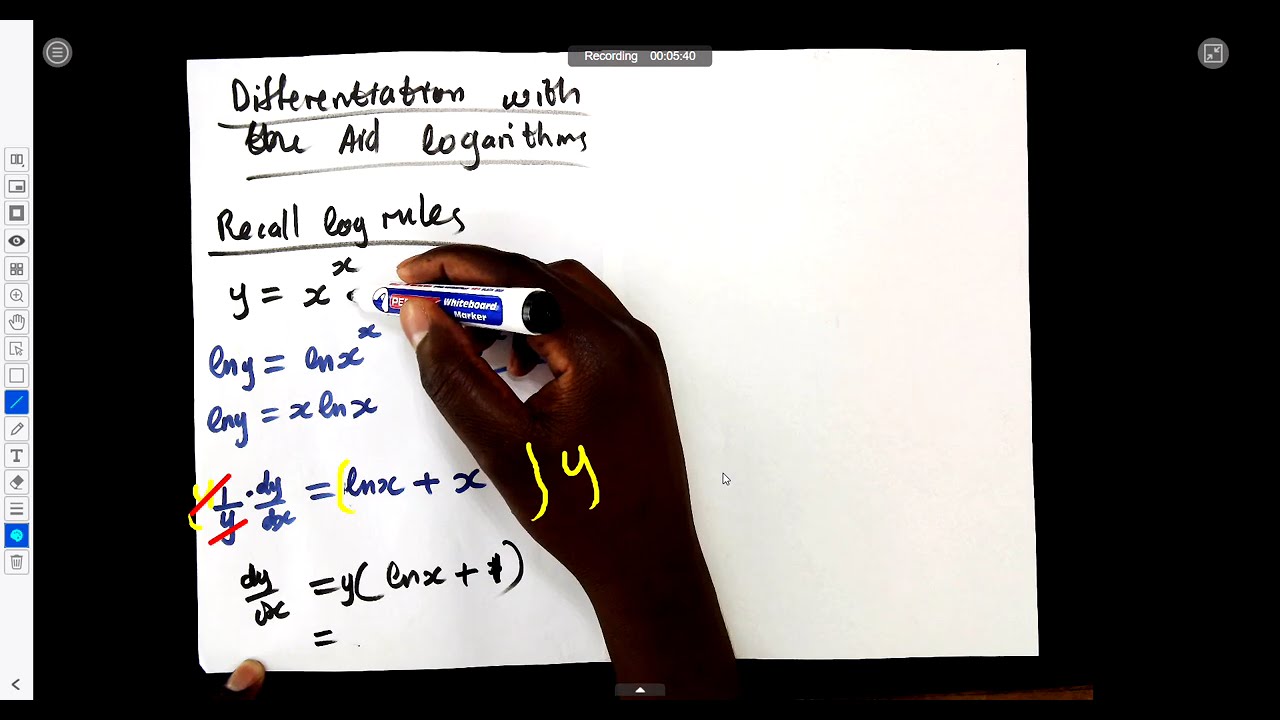 Recording 00:05:40
Differentiation with
the Aid logarithms
Recall log rules
y = x^x
Whiteboard
Marker
ln y = ln x^x
ln y = x ln x
y 1/y · dy/dx = (ln x + x ) y
dy/dx = y( ln x + 1)
=
T